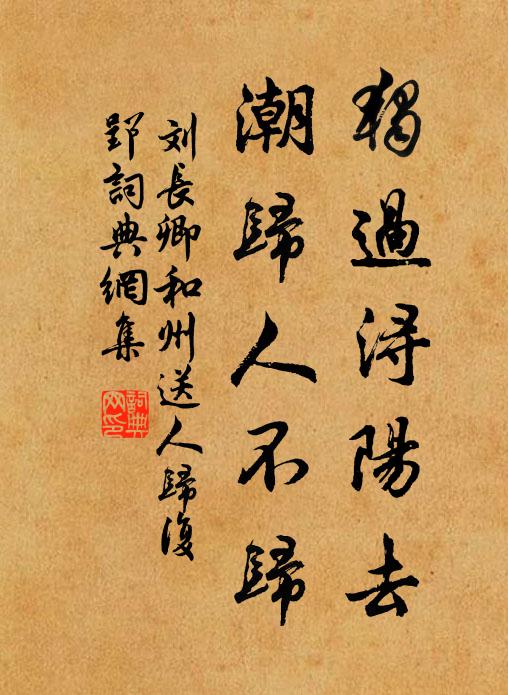 獨過浔陽去
潮歸人不歸
刘長卿和州送人歸復
郢詞典網集
詞典网印